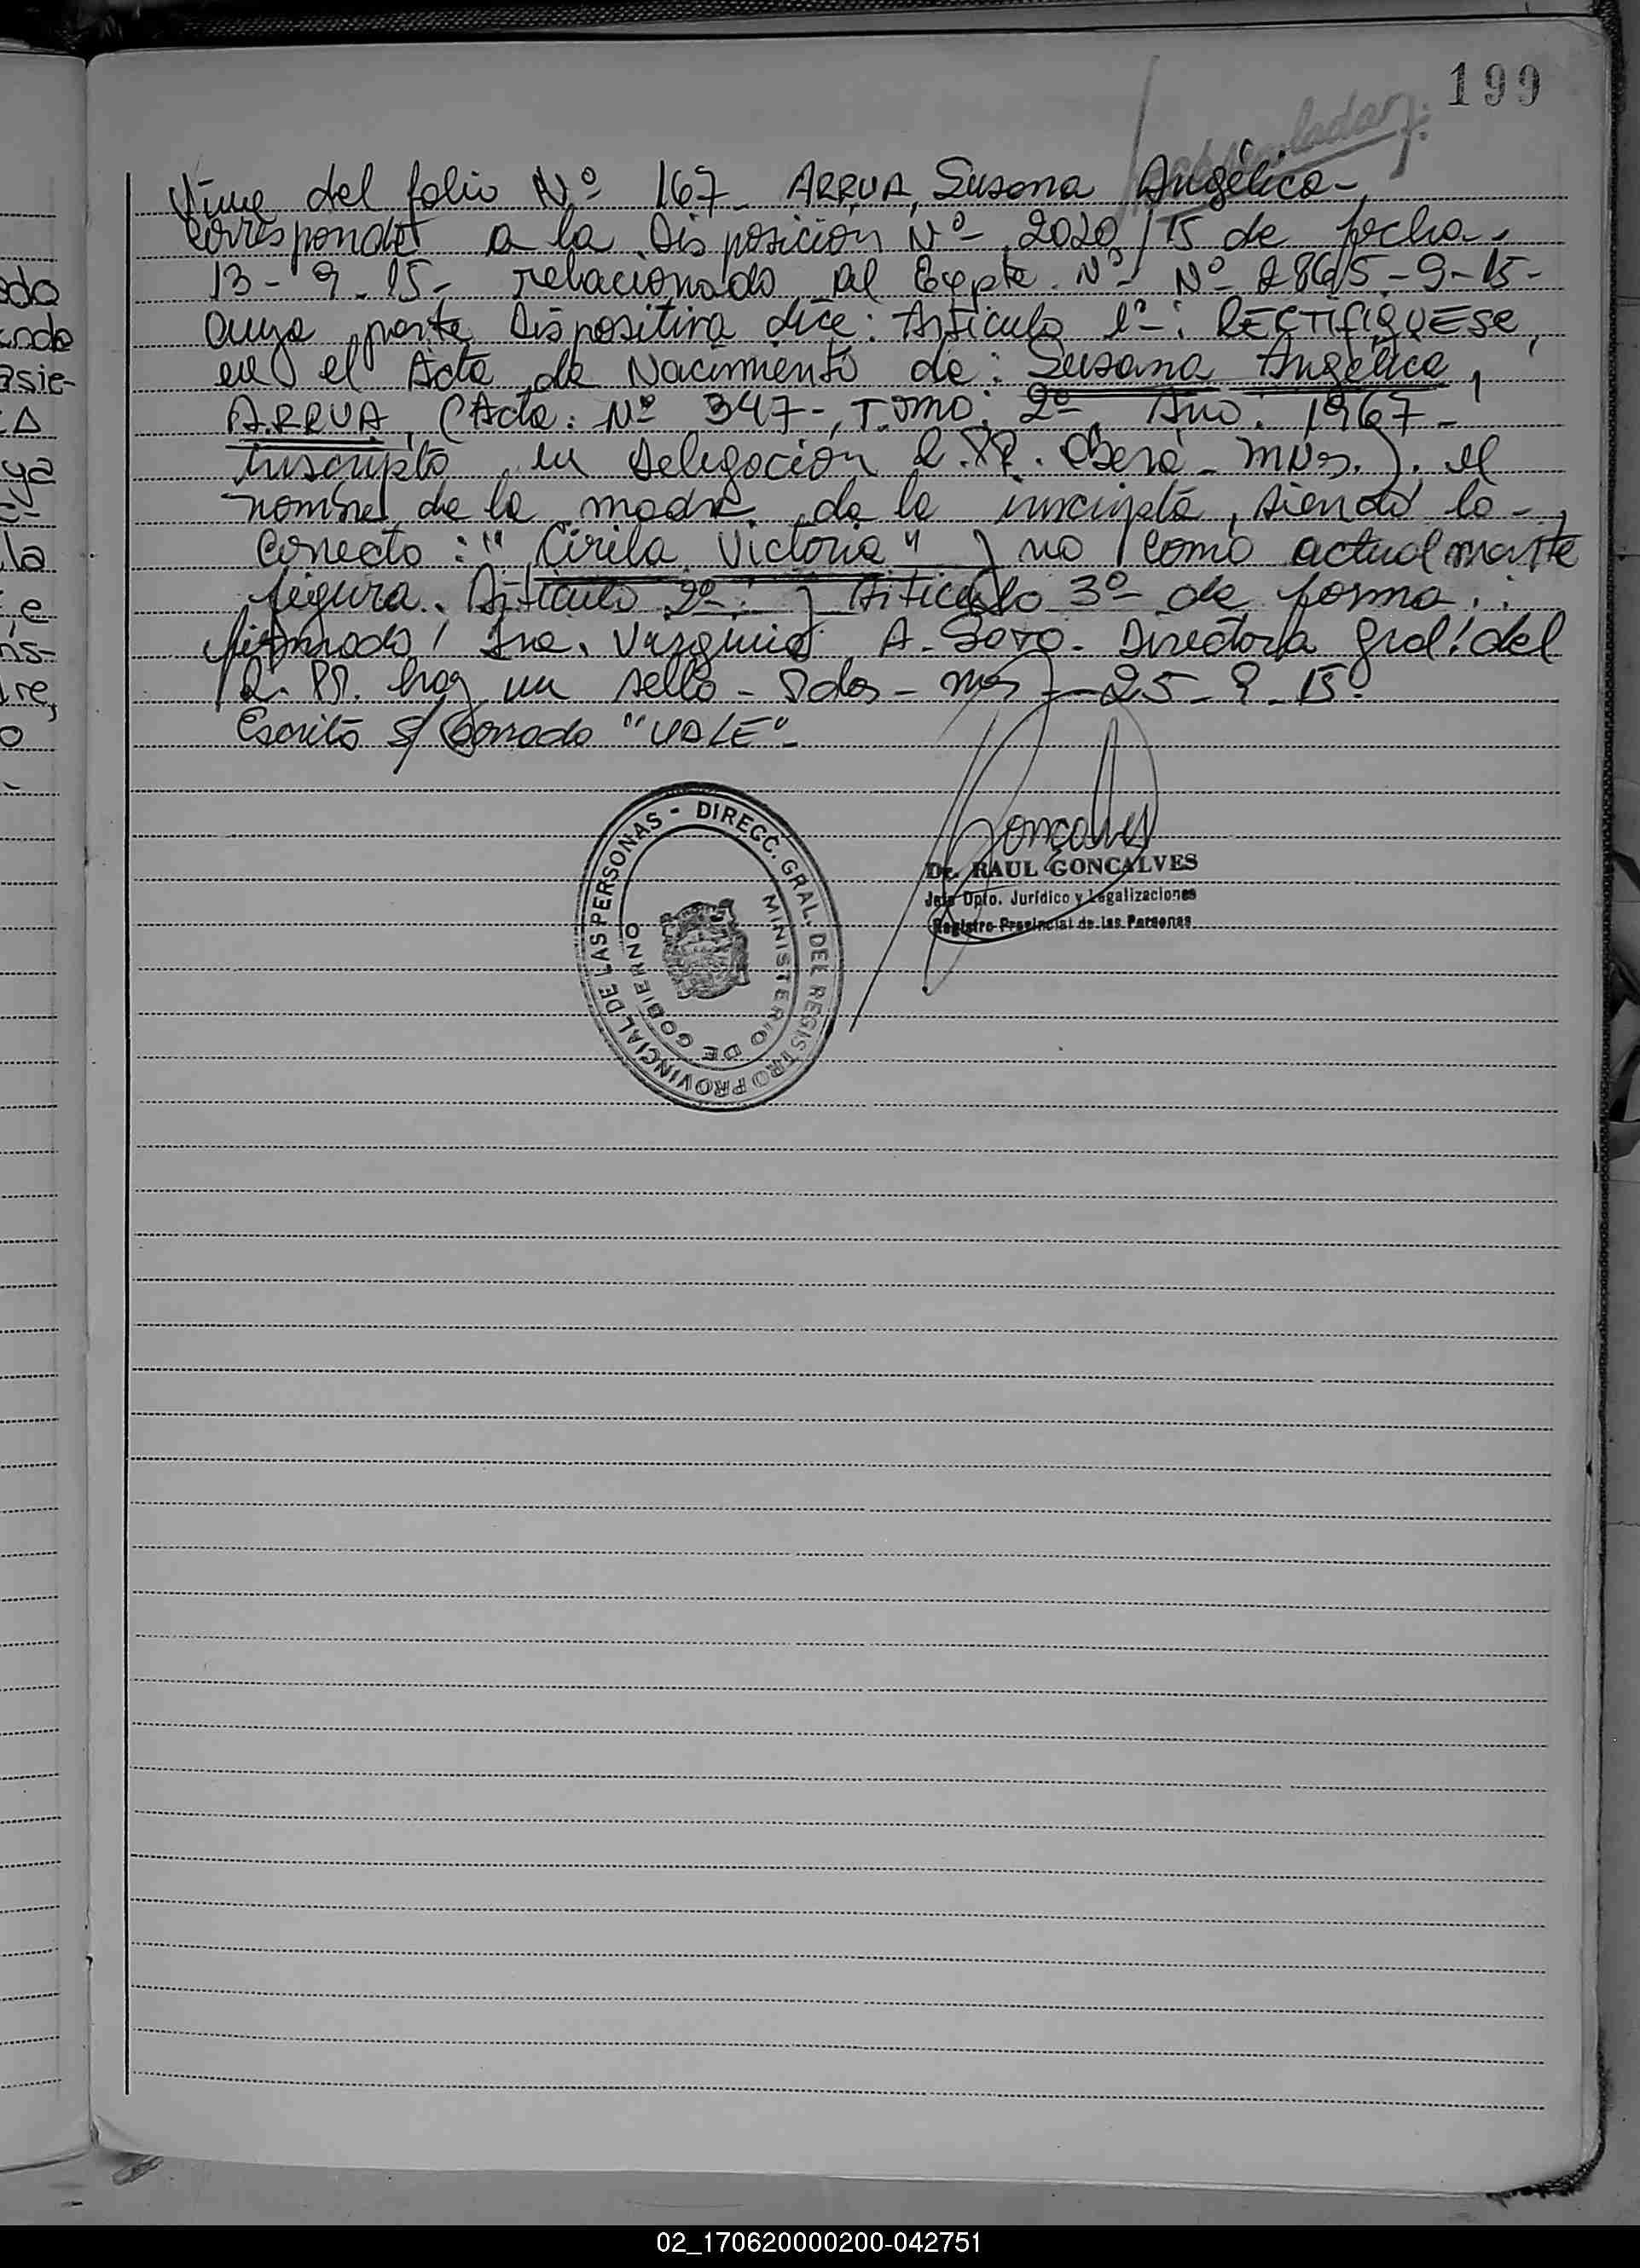 199
Viene del folio Nº 167- ARRUA, Susana Angélica-
Corresponde a la Disposición Nº- 2020/15 de fecha-
13-9-15- relacionado al Expte. Nº- Nº 2865-9-15-
cuya parte Dispositiva dice: Artículo 1º-: RECTIFIQUESE,
en el Acta de Nacimiento de: Susana Angélica
ARRUA, (Acta: Nº 347-, Tomo: 2º Año: 1967-
inscripta en Delegación R.PP. Oberá- Mnes.). el
nombre de la madre de la inscripta, siendo lo-
correcto: "Cirila Victoria" y no como actualmente
figura. Artículo 2º: y Artículo 3º- de forma.
firmado/ Sra. A. Directora Gral. del
R.PP. hay un sello- Pdas- Mnes- 25-9-15.
Escrito s/ borrado "VALE"-
Gonçalves
Dr. RAUL GONCALVES
Jefe Dpto. Jurídico y Legalizaciones
Registro Provincial de las Personas
DIRECC. GRAL. DEL REGISTRO PROVINCIAL DE LAS PERSONAS -
MINISTERIO DE GOBIERNO
do
ndo
asie-
ya
la
e
ns-
re,
o
02_170620000200-042751